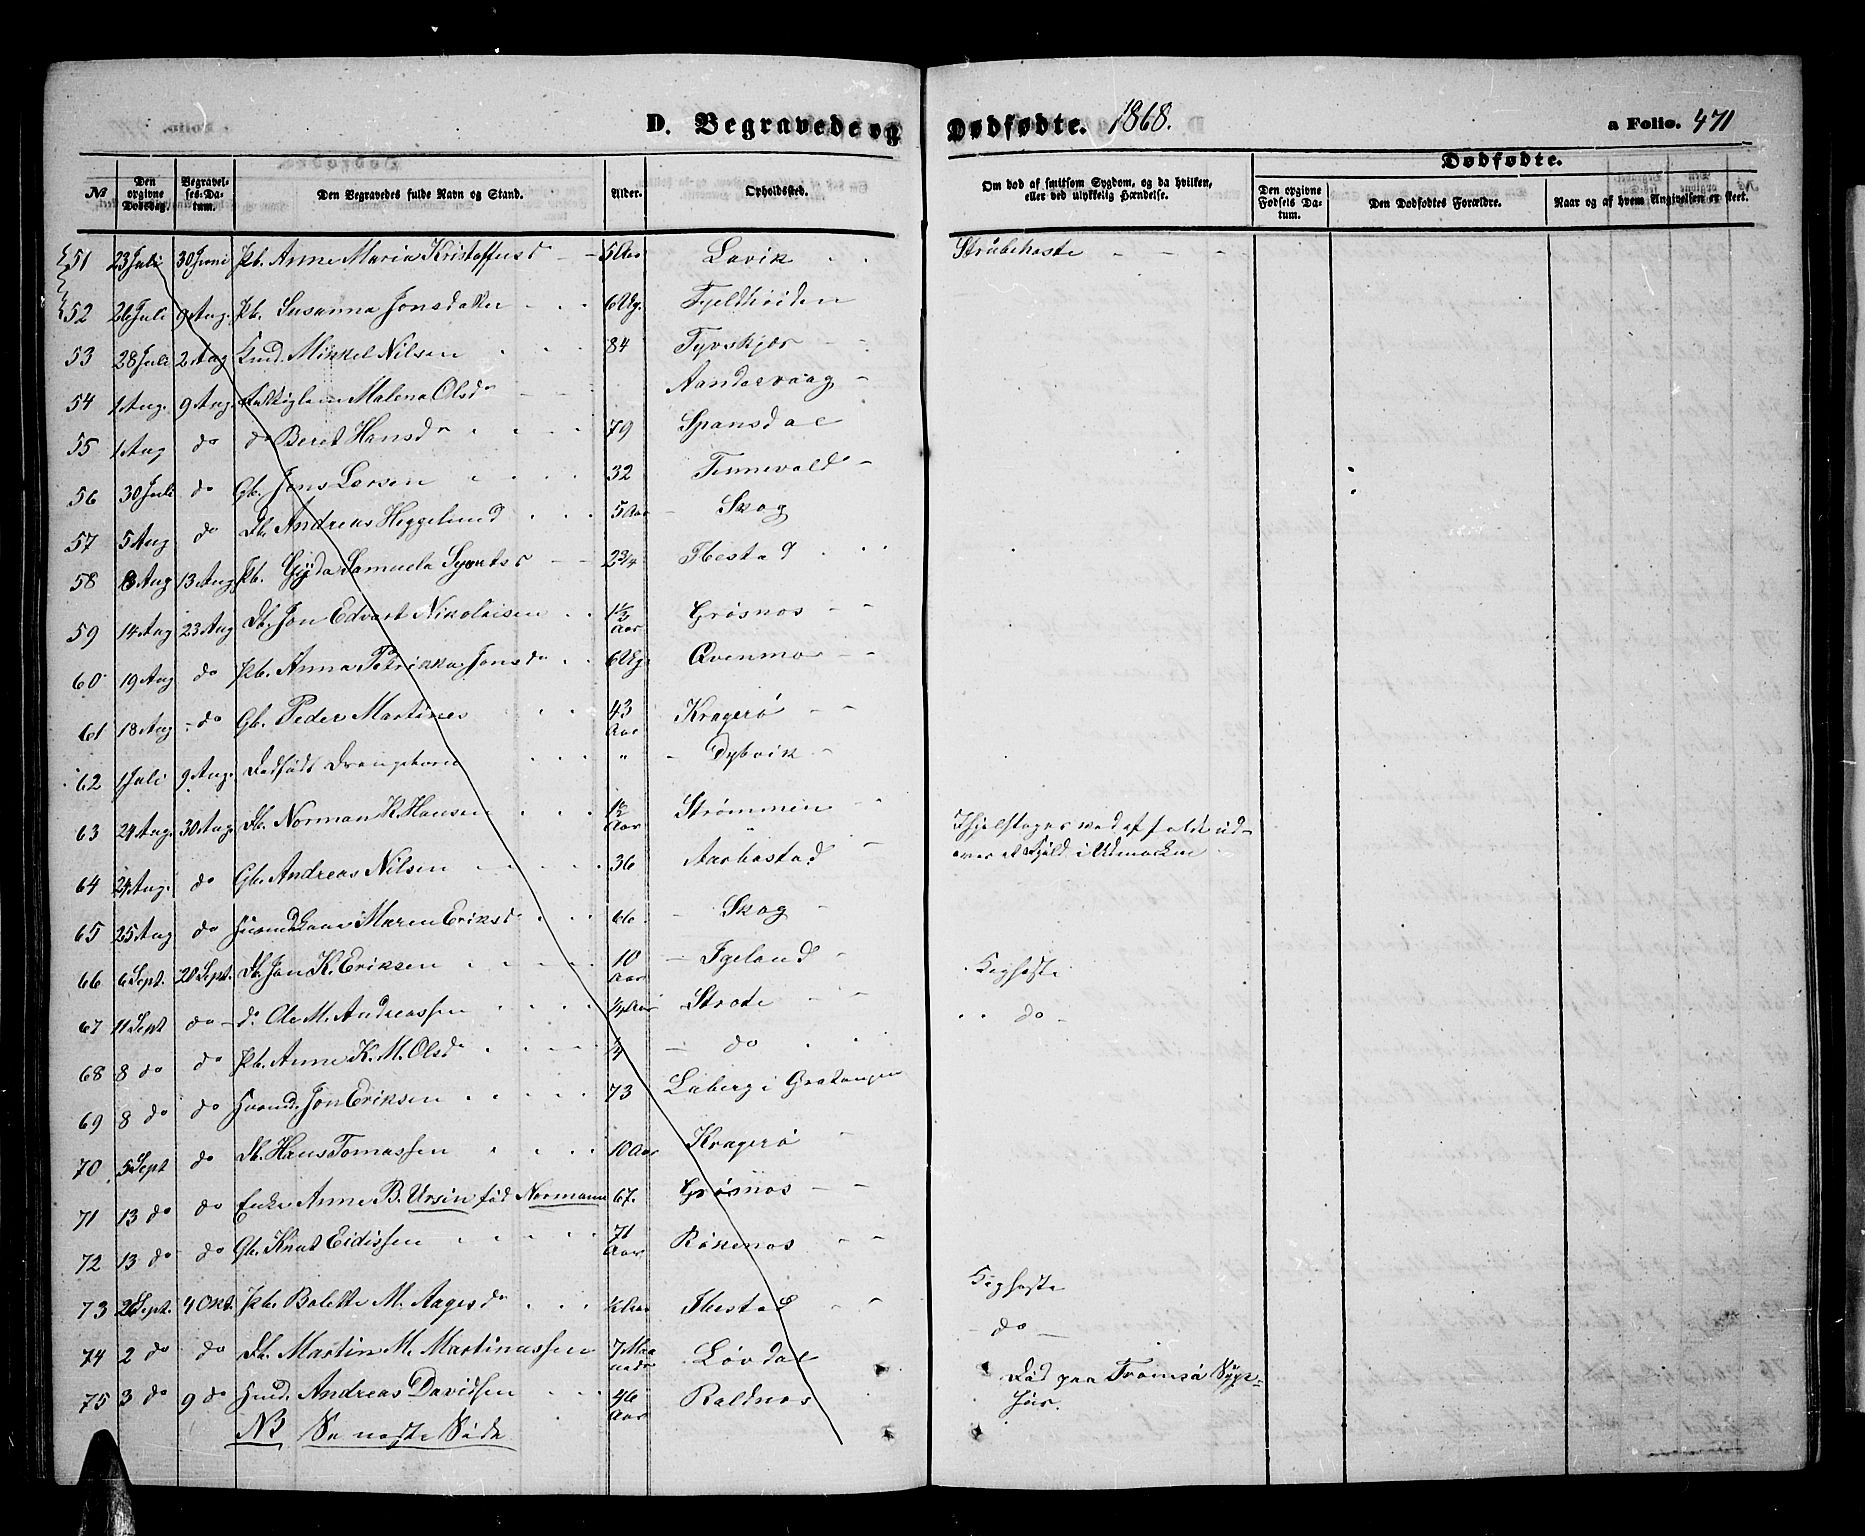 D. Begravede og Dødfødte. 1868.
a Folio. 471
Dødfødte.
№ Den opgivne Dødsdag. Begravelses-Datum. Den Begravedes fulde Navn og Stand. Alder. Opholdssted. Om død af smitsom Sygdom, og da hvilken, eller ved ulykkelig Hændelse. Den opgivne Fødsels Datum. Den Dødfødtes Forældre. Naar og af hvem Angivelsen er skeet.
51 23 Juli 30 Juni Pb. Anne Maria Kristoffersd Lavik Strubehoste
52 26 Juli 9 Aug. Pb. Susanna Jonsdatter 6 Ug. Fjeldhøiden
53 28 Juli 2 Aug Mikkel Nilsen 84 Tyvskjær
54 1 Aug. 9 Aug. Malena Olsdr Aandervaag
55 1 Aug do do Beret Hansdr 79 Spansdal
56 30 Juli do Gb. Jens Larsen 32 Tennevold
57 5 Aug do Db. Andreas Heggelund 5 Aar Skog
58 8 Aug 13 Aug Pb. Gyda Samuela 2 3/4 Ibestad
59 14 Aug 23 Aug Db. Jon Edvart Nikolaisen 1 1/2 Aar Grøsnos
60 19 Aug do Pb. Anna Petrikka Jonsdr 6 Ug. Qvenmo
61 18 Aug do Gb. Peder Martines 43 Aar Kragerø
62 1 Juli 9 Aug. Dødfødt Drengebarn " Dybvik
63 24 Aug. 30 Aug. Db. Norman K. Hansen 1 1/2 Aar Strømmen
64 24 Aug. do Gb. Andreas Nilsen 36 Aarbostad Ihjelslagen ved at falde udover et Fjeld i Udmarken
65 25 Aug do Maren Eriksd 66 Skog
66 6 Sept. 20 Sept. Db. Jon K. Eriksen 10 Aar Igeland Kighoste
67 11 Sept do do Ole M. Andreassen Strøte do
68 8 do do Pb. Anne K. M. Olsdr do
69 8 do do Jon Eriksen 73 Laberg i Gratangen
70 5 Sept do Db. Hans Tomassen 10 Aar Kragerø
71 13 do do Enke Anne B. Ursin fød Normann 67. Grøsnos
72 13 do do Gb. Knut Eidissen 71 Aar Røkenos
73 Sept. 4 Okt. Pb. Bolette M. Aagesdr Ibestad Kighoste
74 2 do do Db. Martin M. Martinussen 7 Maaneder Løvdal do
75 3 do 9 do Andreas Davidsen 46 Aar Roldnos Død paa Tromsø Sygehus.
NB Se næste Side